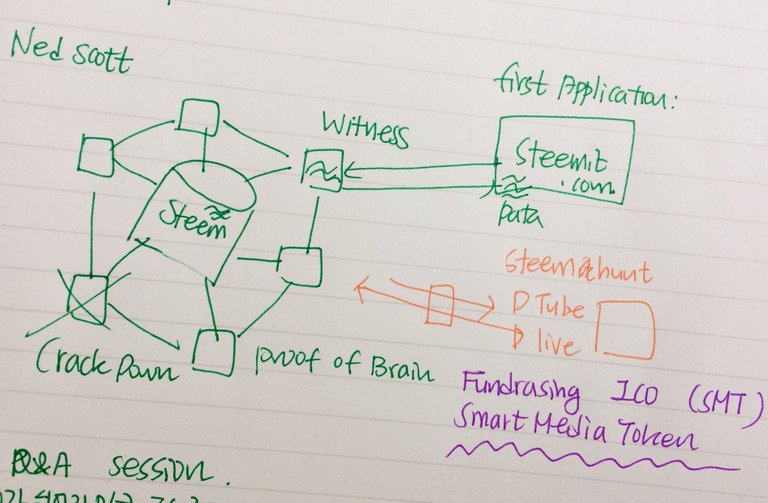 Ned Scott
first Application:
Witness
Steemit
.com.
Steem
Data
Steemhunt
D Tube
D live
Crack Down
proof of Brain
Fundrasing ICO (SMT)
Smart Media Token
Q&A session.